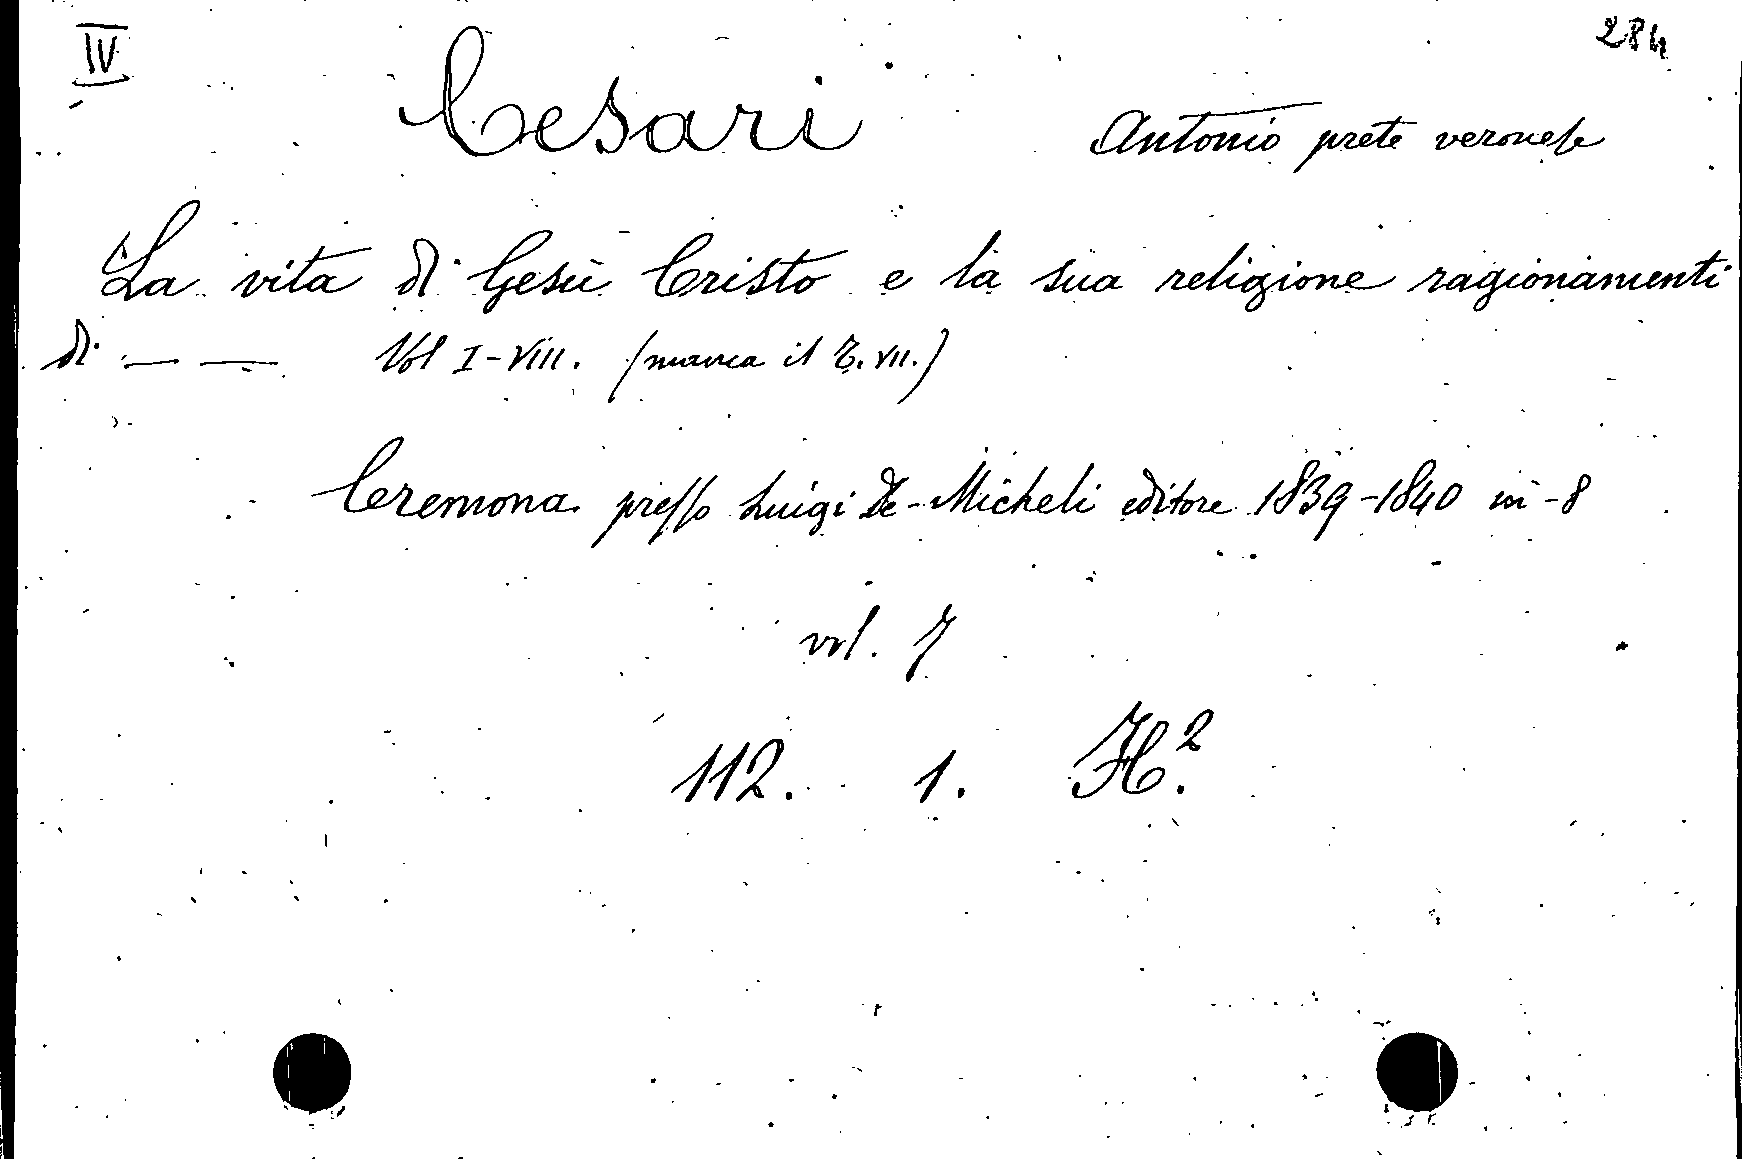 IV 284
Cesari Antonio prete veronese
La vita di Gesù Cristo e la sua religione ragionamenti
di — — Vol I-VIII. (manca il T. VII.)
Cremona presso Luigi De-Micheli editore 1839-1840 in-8
vol. 7
112. 1. H.²